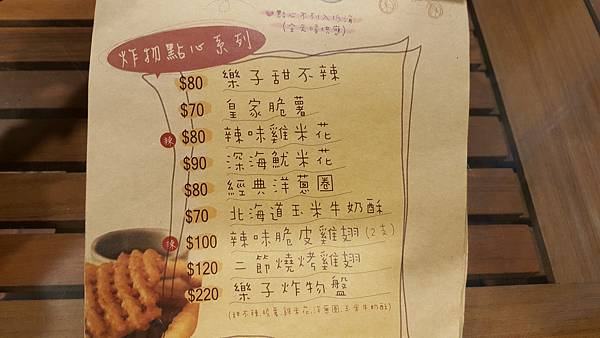 點心不列入低消
(全天候供應)
炸物點心系列
$80 樂子甜不辣
$70 皇家脆薯
辣 $80 辣味雞米花
$90 深海魷米花
$80 經典洋蔥圈
$70 北海道玉米牛奶酥
辣 $100 辣味脆皮雞翅(2支)
$120 二節燒烤雞翅
$220 樂子炸物盤
(甜不辣.脆薯.雞米花.洋蔥圈.玉米牛奶酥)